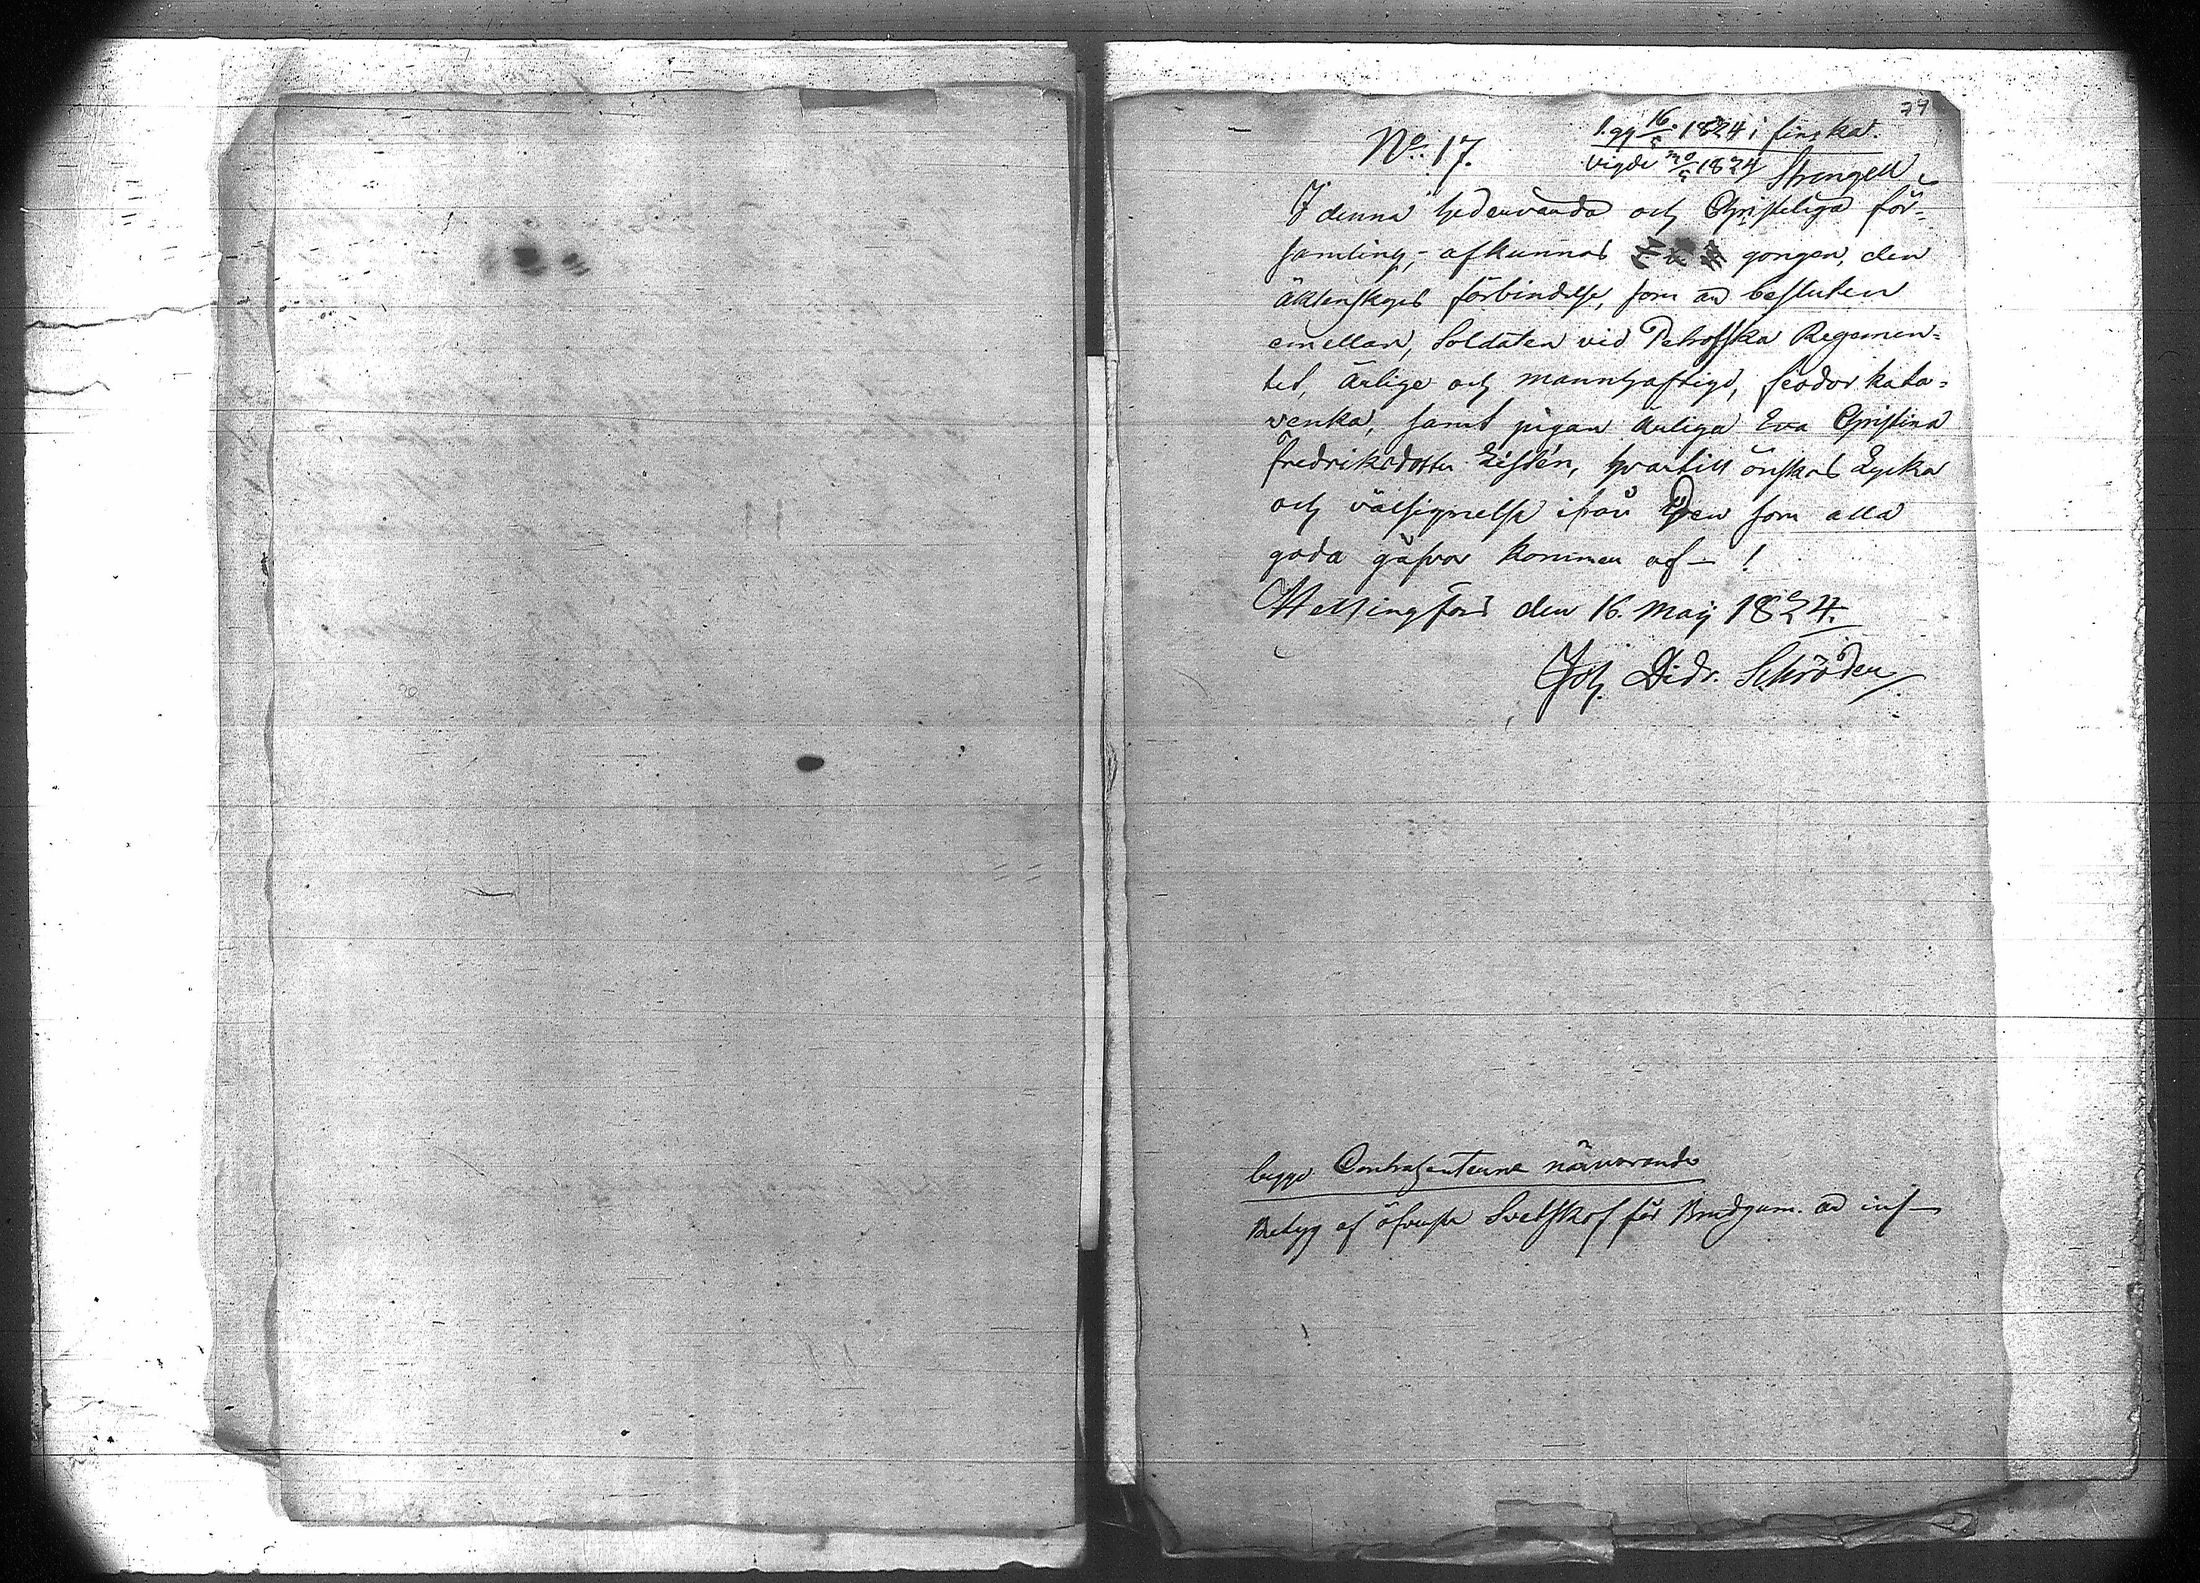 79
No 17.
1. gg 16/5 1824 i finska.
vigde 30/5 1824 Strengell
I denna hedervärda och Christeliga för-
samling, afkunnas gongen, den
äktenskaps förbindelse, som är besluten
emellan, Soldaten vid Petrofska Regemen-
tet, ärlige och mannhaftige, feodor kata-
venka, samt pigan ärliga Eva Christina
fredriksdotter Lisién, hvartill önskas Lycka
och välsignelse ifrån Den som alla
goda gåfvor kommer af — !
Helsingfors den 16. Maij 1824.
Joh. Didr. Schröder
begge Contrahenterne närvarande
Betyg af öfverste Svetskof för Brudgum. är inf—